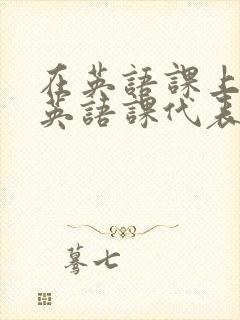 在英語課上
英語課代表
驀七